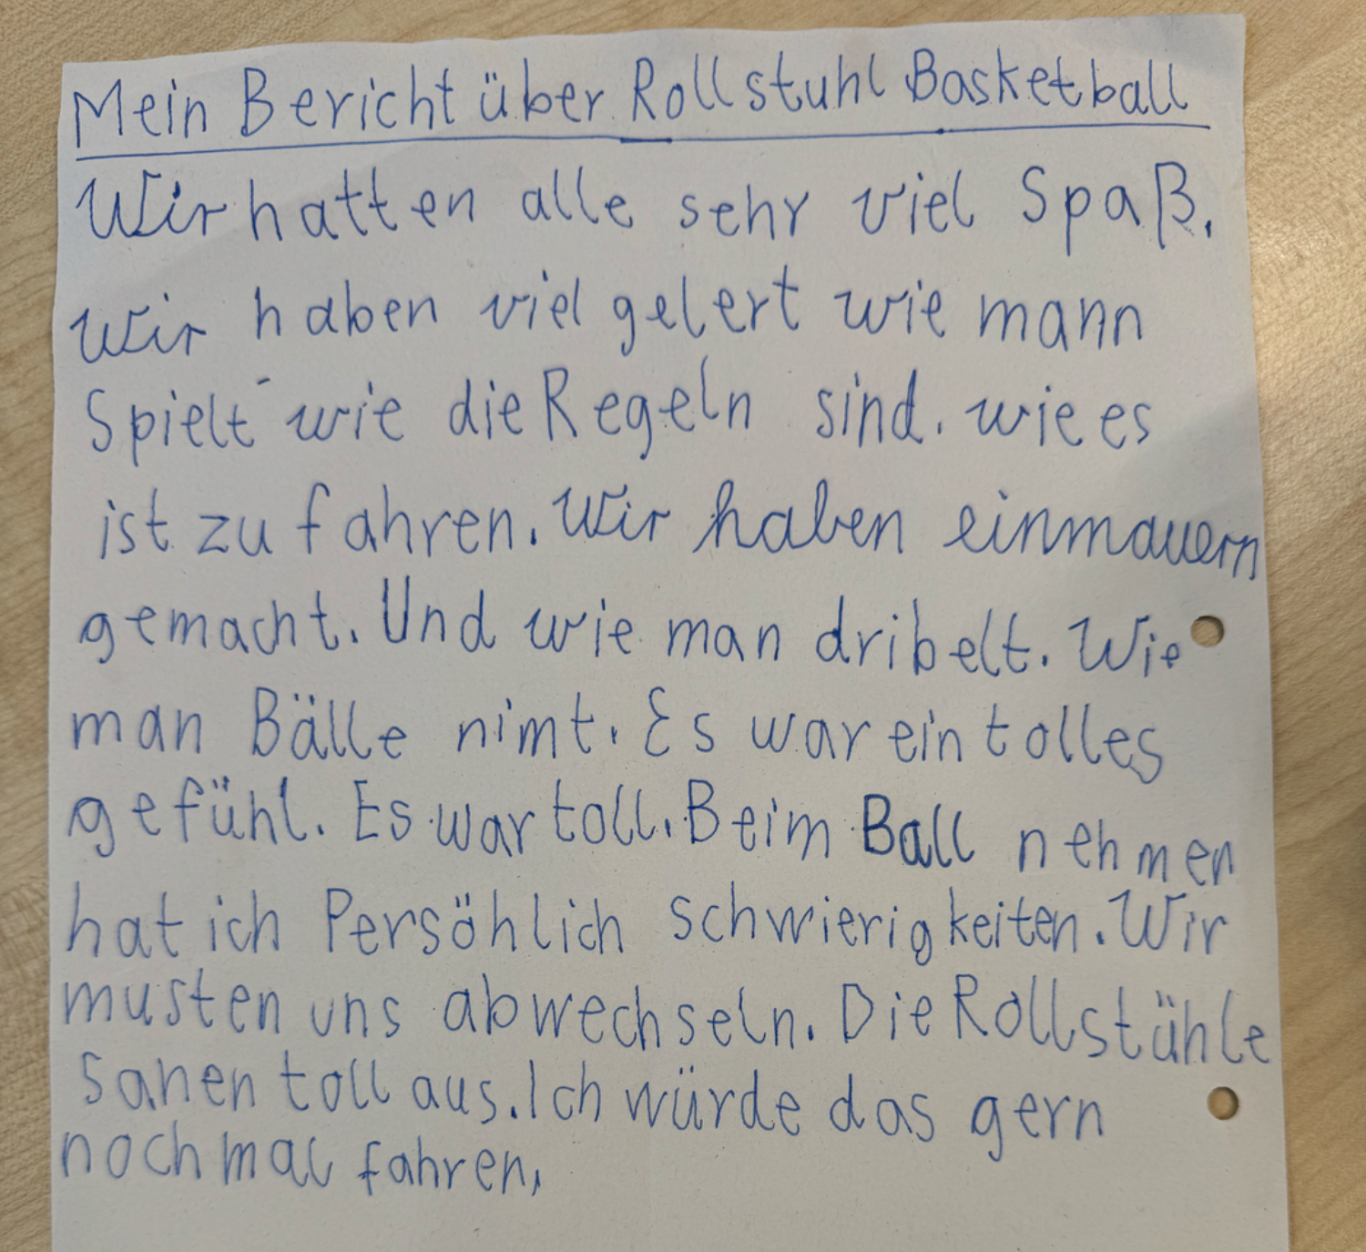 Mein Bericht über Rollstuhl Basketball
Wir hatten alle sehr viel Spaß.
wir haben viel gelert wie mann
Spielt wie die Regeln sind. wie es
ist zu fahren. Wir haben einmauern
gemacht. Und wie man dribelt. Wie
man Bälle nimt. Es war ein tolles
gefühl. Es war toll. Beim Ball nehmen
hat ich Persöhlich schwierigkeiten. Wir
musten uns abwechseln. Die Rollstühle
sahen toll aus. Ich würde das gern
nochmal fahren,